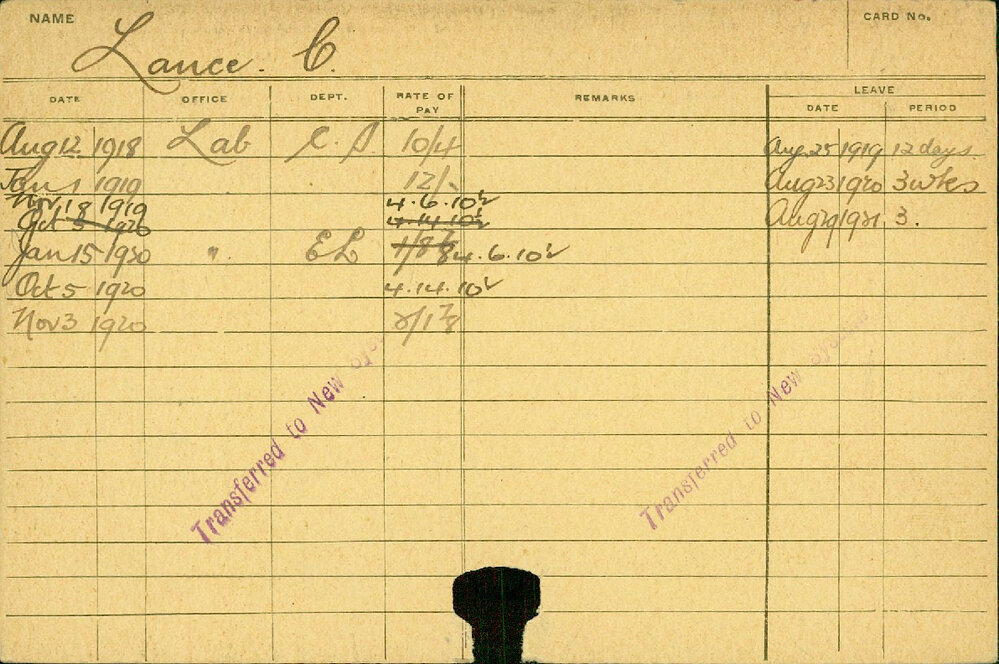 NAME Lance. C. CARD No.
DATE OFFICE DEPT. RATE OF PAY REMARKS LEAVE
DATE PERIOD
Aug 12 1918 Lab 10/4 Aug 25 1919 12 days.
Jan 1 1919 12/- Aug 23 1920 3 wks
Nov 18 1919 4.6.10½ Aug 29 1921 3.
Oct 5 1920 4.14.10½
Jan 15 1920 ". EL 4.6.10½
Oct 5 1920 4.14.10½
Nov 3 1920
Transferred to New System
Transferred to New System